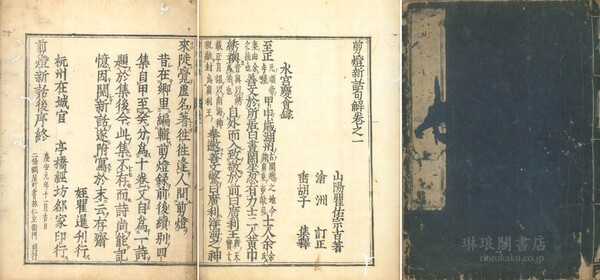 剪燈新話句解卷之一
山陽瞿佑宗吉著
滄洲 訂正
垂胡子 集釋
水宮慶會錄
至正 甲申歲潮州 士人余
善文於所居白晝閒坐忽有力士二人黃巾
繡襖 自外而入致敬於前曰廣利王
奉邀善文驚曰廣利洋海之神
來陡覺虛名著往往逢人問剪燈
昔在鄉里編輯剪燈錄前後續別四
集自甲至癸分爲十卷又自爲一詩
題於集後今此集不存而詩尚能記
憶因閱新話遂附寫於末云存齋
姪瞿暹刊行
杭州在城官 亭橋經坊郁家印行
剪燈新話後序終
慶安元年十一月吉日
二條鶴屋町書林仁左衛門 刊行
琳琅閣書店
rinrokaku.co.jp